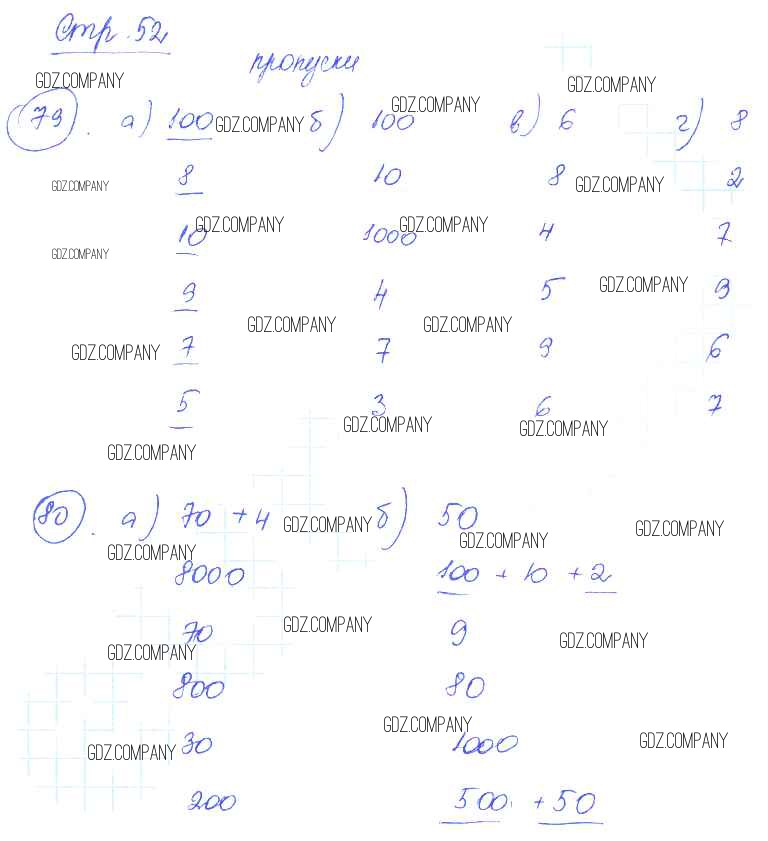 Стр. 52
пропуски
GDZ.COMPANY GDZ.COMPANY
79. а) 100 GDZ.COMPANY б) 100 GDZ.COMPANY в) 6 г) 8
GDZ.COMPANY 8 10 8 GDZ.COMPANY 2
10 GDZ.COMPANY 1000 GDZ.COMPANY 4 7
GDZ.COMPANY
9 4 5 GDZ.COMPANY 9
GDZ.COMPANY GDZ.COMPANY
GDZ.COMPANY 7 7 9 6
5 3 6 7
GDZ.COMPANY GDZ.COMPANY
GDZ.COMPANY
80. а) 70 + 4 GDZ.COMPANY б) 50 GDZ.COMPANY
GDZ.COMPANY GDZ.COMPANY
8000 100 + 10 + 2
70 GDZ.COMPANY 9 GDZ.COMPANY
GDZ.COMPANY
800 80
GDZ.COMPANY
GDZ.COMPANY 30 1000 GDZ.COMPANY
200 500 + 50